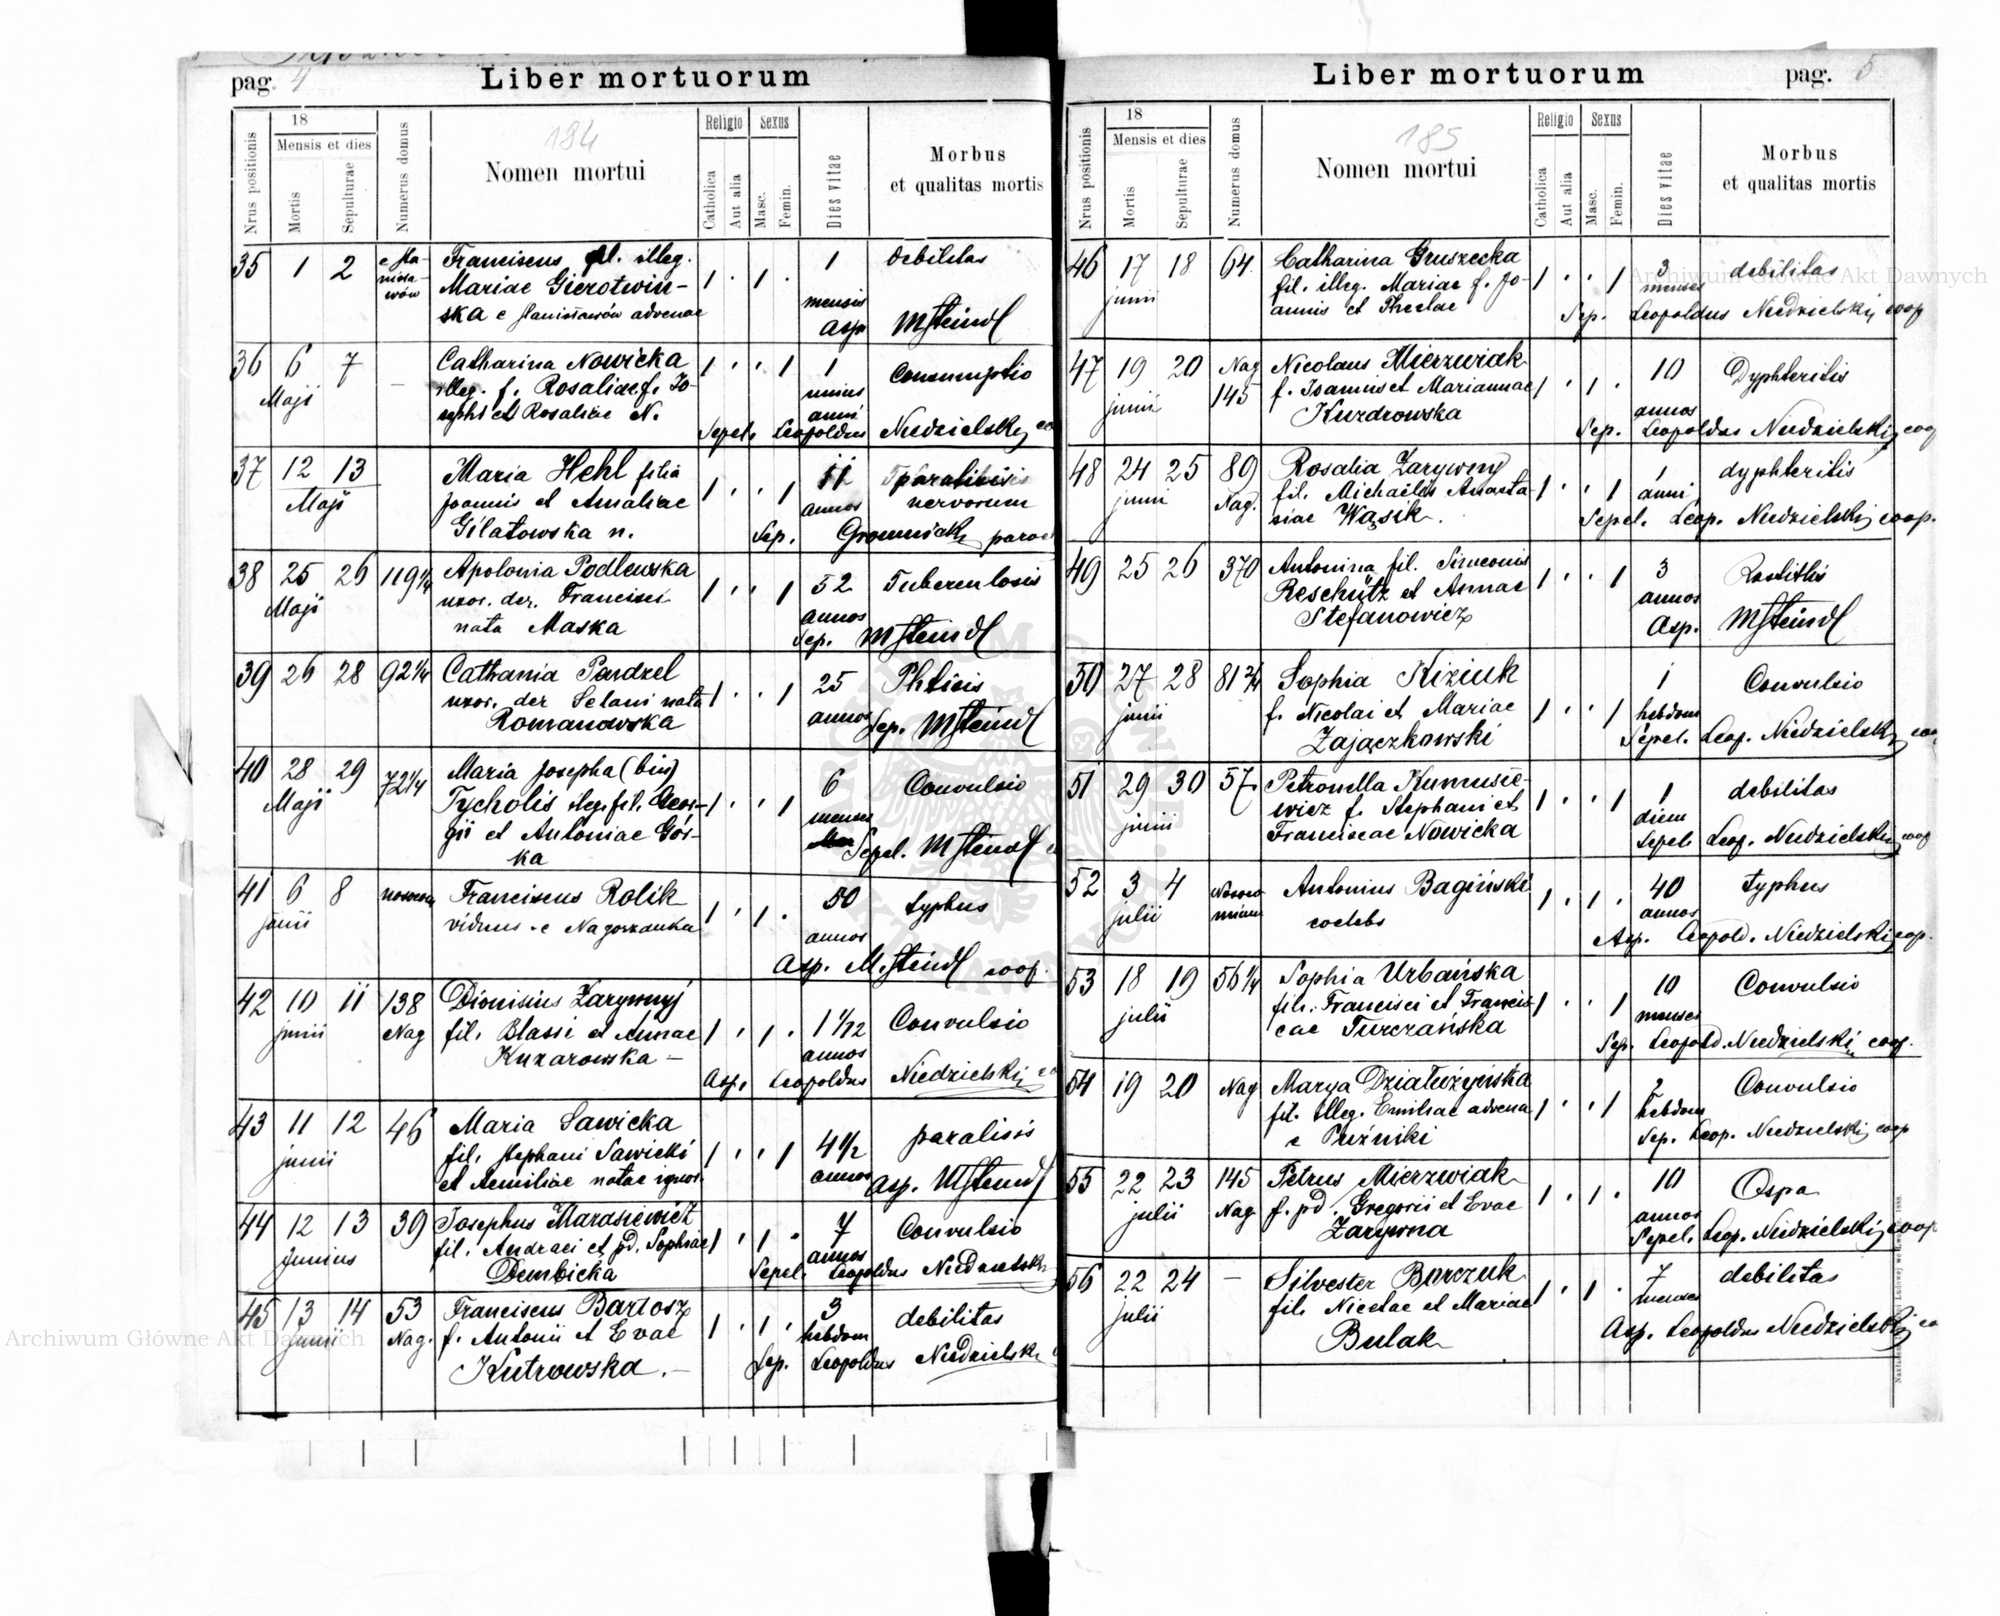 pag. 4
Liber mortuorum
184
Nrus positionis
18
Mensis et dies
Mortis
Sepulturae
Numerus domus
Nomen mortui
Religio
Catholica
Aut alia
Sexus
Masc.
Femin.
Dies vitae
Morbus
et qualitas mortis
35 1 2
Franciscus fil. illeg. 1 debilitas
Mariae Gierotwiń- 1 . 1 .
ska e Stanisławów advenae mensis
Asp. MSteindl
36 6 7 — Catharina Nowicka 1 . . 1 1 Consumptio
Maji illeg. f. Rosaliae f. Jo- unius
sephi et Rosaliae N. anni
Sepel. Leopoldus Niedzielski
37 12 13 Maria Hehl filia 11
Maji Joannis et Amaliae 1 . . 1 annos nervorum
Gilatowska n. Sep. Gromnicki
38 25 26 119 1/4 Apolonia Podlewska 1 . . 1 52 Tuberculosis
Maji uxor. der. Francisci annos
nata Maska Sep. MSteindl
39 26 28 92 1/4 Catharina Pandzel 25 Phtisis
uxor. der nata 1 . . 1 annos
Romanowska Sep. MSteindl
40 28 29 72 1/4 Maria Josepha (bin) 6 Convulsio
Maji Tycholis ileg. fil. Geor- 1 . . 1 menses
gii et Antoniae Gór-
ka Sepel. MSteindl
41 6 8 Franciscus Rolik 50 typhus
junii viduus e Nagorzanka 1 . 1 . annos
Asp. M. Steindl coop.
42 10 11 138 Dionisius Zarywnyj 1 1/12 Convulsio
junii Nag fil. Blassi et Annae 1 . 1 . annos
Kuzarowska —
Asp. Leopoldus Niedzielski
43 11 12 46 Maria Sawicka 4 1/2 paralisis
junii fil. Stephani Sawicki 1 . . 1 annos
et Aemiliae natae ignor. Asp. MSteindl
44 12 13 39 Josephus Marasiewicz 7 Convulsio
Junius fil. Andraei et pd. Sophiae 1 . 1 . annos
Dembicka Sepel. Leopoldus Niedzielski
45 13 14 53 Franciscus Bartosz 3 debilitas
junii Nag. f. Antonii et Evae 1 . 1 . hebdom
Kutrowska .— Sep. Leopoldus Niedzielski
Liber mortuorum
pag. 5
185
Nrus positionis
18
Mensis et dies
Mortis
Sepulturae
Numerus domus
Nomen mortui
Religio
Catholica
Aut alia
Sexus
Masc.
Femin.
Dies vitae
Morbus
et qualitas mortis
46 17 18 64 Catharina Gruszecka 3 debilitas
junii fil. illeg. Mariae f. Jo- 1 . . 1 menses
annis et Theclae Sep. Leopoldus Niedzielski coop
47 19 20 Nag Nicolaus Mierzwiak 10 Dyphteritis
junii 145 f. Ioannis et Mariannae 1 . 1 . annos
Kuzdrowska Sep. Leopoldus Niedzielski coop
48 24 25 89 Rosalia Zarywny 1 dyphteritis
junii Nag. fil. Michaelis Anasta- 1 . . 1 anni
siae Wąsik. Sepel. Leop. Niedzielski coop.
49 25 26 370 Antonina fil. Simeonis 3
Reschütz et Annae 1 . . 1 annos
Stefanowicz Asp. MSteindl
50 27 28 81 3/4 Sophia Kiziuk 1 Convulsio
junii f. Nicolai et Mariae 1 . . 1 hebdom
Zajączkowski Sepel. Leop. Niedzielski
51 29 30 57 Petronella Kumusie- 1 debilitas
junii wicz f. Stephani et 1 . . 1 diem
Franciscae Nowicka Sepel. Leop. Niedzielski coop
52 3 4 Antonius Bagiński 40 typhus
julii coelebs 1 . 1 . annos
Asp. Leopold. Niedzielski coop.
53 18 19 56 1/4 Sophia Urbańska 10 Convulsio
julii fil. Francisci et Francis- 1 . . 1 menses
cae Turczańska Sep. Leopold. Niedzielski coop.
54 19 20 Nag Marya Działużyńska 2 Convulsio
fil. illeg. Emiliae advena 1 . . 1 hebdom
e Puźniki Sep. Leop. Niedzielski coop
55 22 23 145 Petrus Mierzwiak 10 Ospa
julii Nag f. pd. Gregorii et Evae 1 . 1 . annos
Zarywna Sepel. Leop. Niedzielski coop
56 22 24 — Silvester Barczuk 7 debilitas
julii fil. Nicetae et Mariae 1 . 1 . menses
Bulak Asp. Leopoldus Niedzielski
Archiwum Główne Akt Dawnych
Archiwum Główne Akt Dawnych